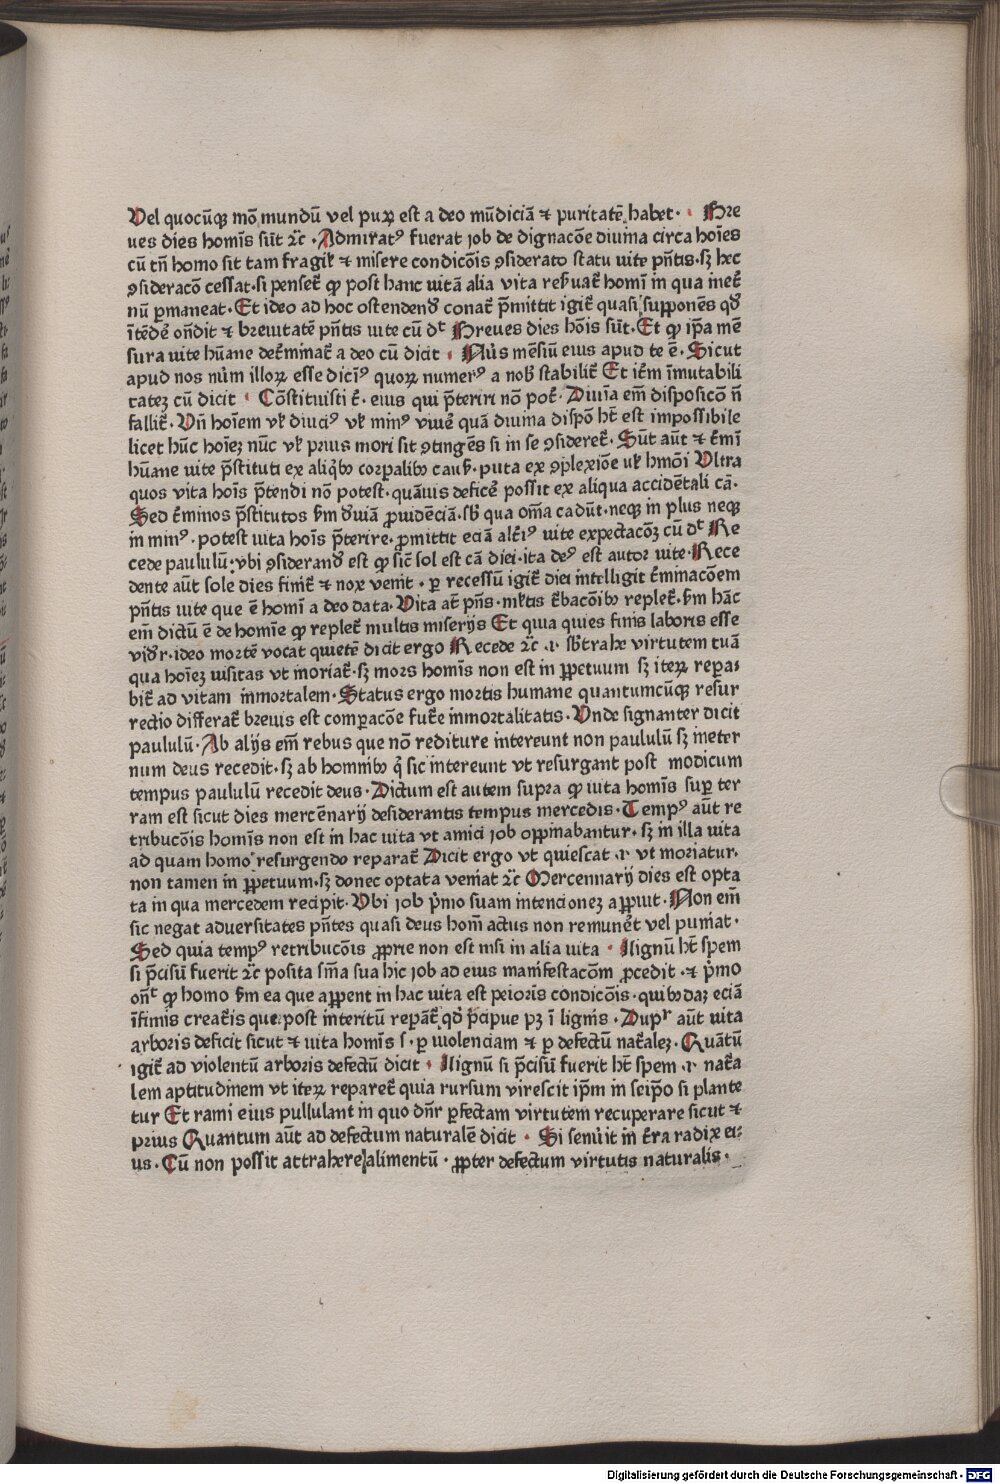 Vel quocūqꝫ mō mundū vel puꝝ est a deo mūdiciā ⁊ puritatē habet · Bre
ues dies homīs sūt ⁊c̄ · Admirat⁹ fuerat iob de dignacōe diuina circa hoīes
cū tn̄ homo sit tam fragil̛ ⁊ misere condicōīs ꝯsiderato statu uite pn̄tis · sꝫ hec
ꝯsideracō cessat · si penset̛ ꝙ post hanc uitā alia vita reb̛uat̛ homī in qua inet̛
nū ꝑmaneat · Et ideo ad hoc ostendend̛ conat̛ p̄mittit igit̛ quasi supponēs qd̛
ītēdē on̄dit ⁊ breuitatē pn̄tis uite cū dt̛ Breues dies hōīs sūt · Et ꝙ ip̄a mē
sura uite hūane det̛minat̛ a deo cū dicit · Nūs mēsiū eius apud te ē · Sicut
apud nos nūm illoꝝ esse dicim⁹ quoꝝ numer⁹ a nob̛ stabilit̛ Et it̛m īmutabili
tateꝫ cū dicit · Cōstituisti t̛ · eius qui p̄teriri nō pot̛ · Diuīa em̄ disposicō n̄
fallit̛ · Vn̄ hoīem vl̛ diuci⁹ vl̛ min⁹ viuē quā diuina dispō ht̄ est impossibile
licet hūc hoīeꝫ nūc vl̛ prius mori sit ꝯtingēs si in se ꝯsideret̛ · Sūt aūt ⁊ t̛mī
hūane uite p̄stituti ex aliqbꝫ corꝑalibꝫ caus̛ · puta ex ꝯplexiōe ul̛ hmōi Vltra
quos vita hoīs p̄tendi nō potest · quāuis deficē possit ex aliqua accidētali cā ·
Sed t̛minos p̄stitutos s̛m d̛uiā ꝓuidēciā · sb̛ qua om̄a cadūt · neqꝫ in plus neqꝫ
in min⁹ · potest uita hoīs p̄terire · ꝓmittit eciā alt̛i⁹ uite expectacōꝫ cū dt̛ Re
cede paululū · vbi ꝯsiderand̛ est ꝙ sic̄ sol est cā diei · ita de⁹ est autor uite · Rece
dente aūt sole dies finit̛ ⁊ nox venit · ꝑ recessū igit̛ diei intelligit t̛minacōem
pn̄tis uite que ē homī a deo data · Vita at̄ pn̄s · ml̛tis t̛bacōibꝫ replet̛ · s̛m hāc
em̄ dictū ē de homīe ꝙ replet̛ multis miserijs Et quia quies finis laboris esse
vid̛r · ideo mortē vocat quietē dicit ergo Recede ⁊c̄ · ı · sb̛trahe virtutem tuā
qua hoīeꝫ uisitas vt moriat̛ · sꝫ mors homīs non est in ꝑpetuum sꝫ iteꝝ reꝑa⸗
bit̛ ad vitam inmortalem · Status ergo mortis humane quantumcūqꝫ resur
rectio differat̛ breuis est comꝑacōe fut̛e inmortalitatis · Vnde signanter dicit
paululū · Ab alijs em̄ rebus que nō rediture intereunt non paululū sꝫ ineter
num deus recedit · sꝫ ab hominibꝫ q̛ sic intereunt vt resurgant post modicum
tempus paululū recedit deus · Dictum est autem supra ꝙ uita homīs suꝑ ter
ram est sicut dies mercēnarij desiderantis tempus mercedis · Temp⁹ aūt re
tribucōīs homīs non est in hac uita vt amici iob oppinabantur · sꝫ in illa uita
ad quam homo resurgendo reparat̛ Dicit ergo vt quiescat · ı · vt moriatur ·
non tamen in ꝑpetuum · sꝫ donec optata veniat ⁊c̄ Mercennarij dies est opta
ta in qua mercedem recipit · Vbi iob p̛mo suam intencioneꝫ aꝑuit · Non em̄
sic negat aduersitates pn̄tes quasi deus homī actus non remunēt vel puniat ·
Sed quia temp⁹ retribucōīs ꝓprie non est nisi in alia uita · Lignū ht̄ spem
si p̄cisū fuerit ⁊c̄ posita sn̄īa sua hic iob ad eius manifestacōm ꝓcedit · ⁊ p̛mo
on̄t̛ ꝙ homo s̛m ea que apparent in hac uita est peioris condicōīs · quibꝫdaꝫ eciā
īfimis creat̛is que post interitū reꝑāt̛ qd̛ p̄cipue pꝫ ī lignis · Dupl̛r aūt uita
arboris deficit sicut ⁊ uita homīs s · ꝑ uiolenciam ⁊ ꝑ defectū nat̛aleꝫ · Quātū
igit̛ ad violentū arboris defectū dicit · Lignū si p̄cisū fuerit ht̄ spem · ı · nat̛a
lem aptitudinem vt iteꝝ reparet̛ quia rursum virescit ip̄m in seip̄o si plante
tur Et rami eius pullulant in quo dn̄r ꝑfectam virtutem recuperare sicut ⁊
prius Quantum aūt ad defectum naturalē dicit · Si senūit in t̛ra radix ei⸗
us · Cū non possit attrahere alimentū · ꝓpter defectum virtutis naturalis ·
Digitalisierung gefördert durch die Deutsche Forschungsgemeinschaft - DFG